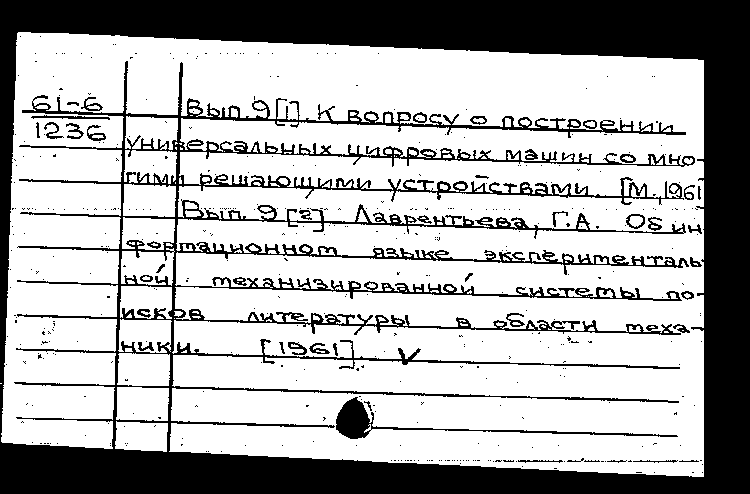 61-6
1236
Вып. 9 [1]. К вопросу о построении
универсальных цифровых машин со мно-
гими решающими устройствами. [М., 1961]
Вып. 9 [2] Лаврентьева, Г.А. Об ин-
формационном языке эксперименталь-
ной механизированной системы по-
исков литературы в области меха-
ники. [1961] V